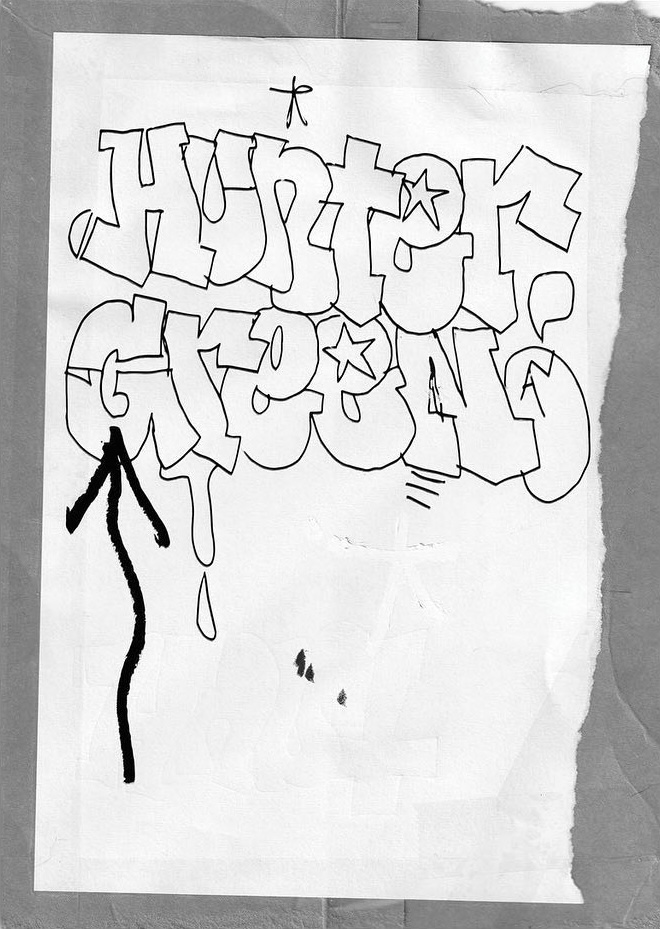 Hunter
GreeN